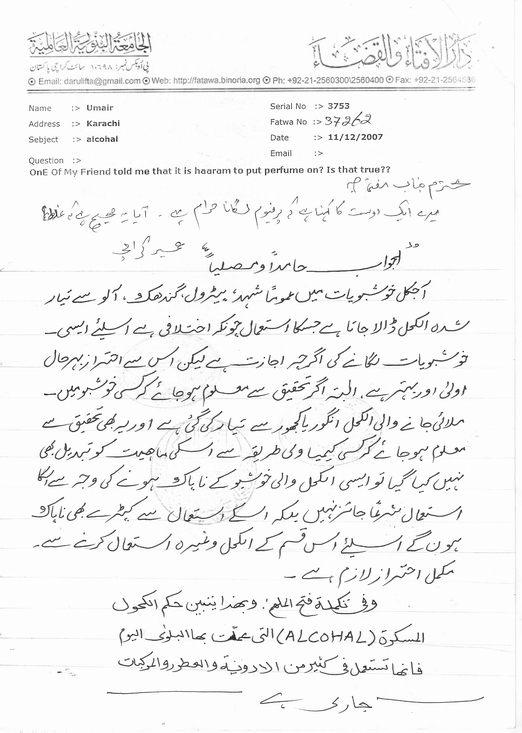 الجامعة البنوریة العالمیة
دار الافتاء والقضاء
پی او بکس نمبر: ۱۰۶۹۸ سائٹ کراچی پاکستان
Email: darulifta@gmail.com Web: http://fatawa.binoria.org Ph: +92-21-2560300\2560400 Fax: +92-21-2564586
Name :> Umair
Serial No :> 3753
Address :> Karachi
Fatwa No :> 37262
Sebject :> alcohal
Date :> 11/12/2007
Email :>
Question :>
OnE Of My Friend told me that it is haaram to put perfume on? Is that true??
محترم جناب مفتی صاحب
میرے ایک دوست کا کہنا ہے کہ پرفیوم لگانا حرام ہے۔ آیا یہ صحیح ہے کہ غلط؟
عمیر کراچی
الجواب حامداً ومصلیاً
آجکل خوشبویات میں عموماً شہد، پیٹرول، گندھک، آلو سے تیار
شدہ الکحل ڈالا جاتا ہے جسکا استعمال چونکہ اختلافی ہے اسلئے ایسی۔
خوشبویات لگانے کی اگرچہ اجازت ہے لیکن اس سے احتراز بہرحال
اولیٰ اور بہتر ہے۔ البتہ اگر تحقیق سے معلوم ہوجائے کہ کسی خوشبو میں۔
ملائی جانے والی الکحل انگور یا کھجور سے تیار کی گئی ہے اور یہ بھی تحقیق سے
معلوم ہوجائے کہ کسی کیمیاوی طریقہ سے اسکی ماہیت کو تبدیل بھی
نہیں کیا گیا تو ایسی الکحل والی خوشبو کے ناپاک ہونے کی وجہ سے اسکا
استعمال شرعاً جائز نہیں بلکہ اسکے استعمال سے کپڑے بھی ناپاک
ہوں گے اسلئے اس قسم کے الکحل وغیرہ استعمال کرنے سے۔
مکمل احتراز لازم ہے۔
وفی تکملة فتح الملهم: وبهذا يتبين حكم الكحول
المسكرة (ALCOHAL) التي عمت بها البلوى اليوم
فانها تستعمل في كثير من الادوية والعطور والمركبات
جاری ہے